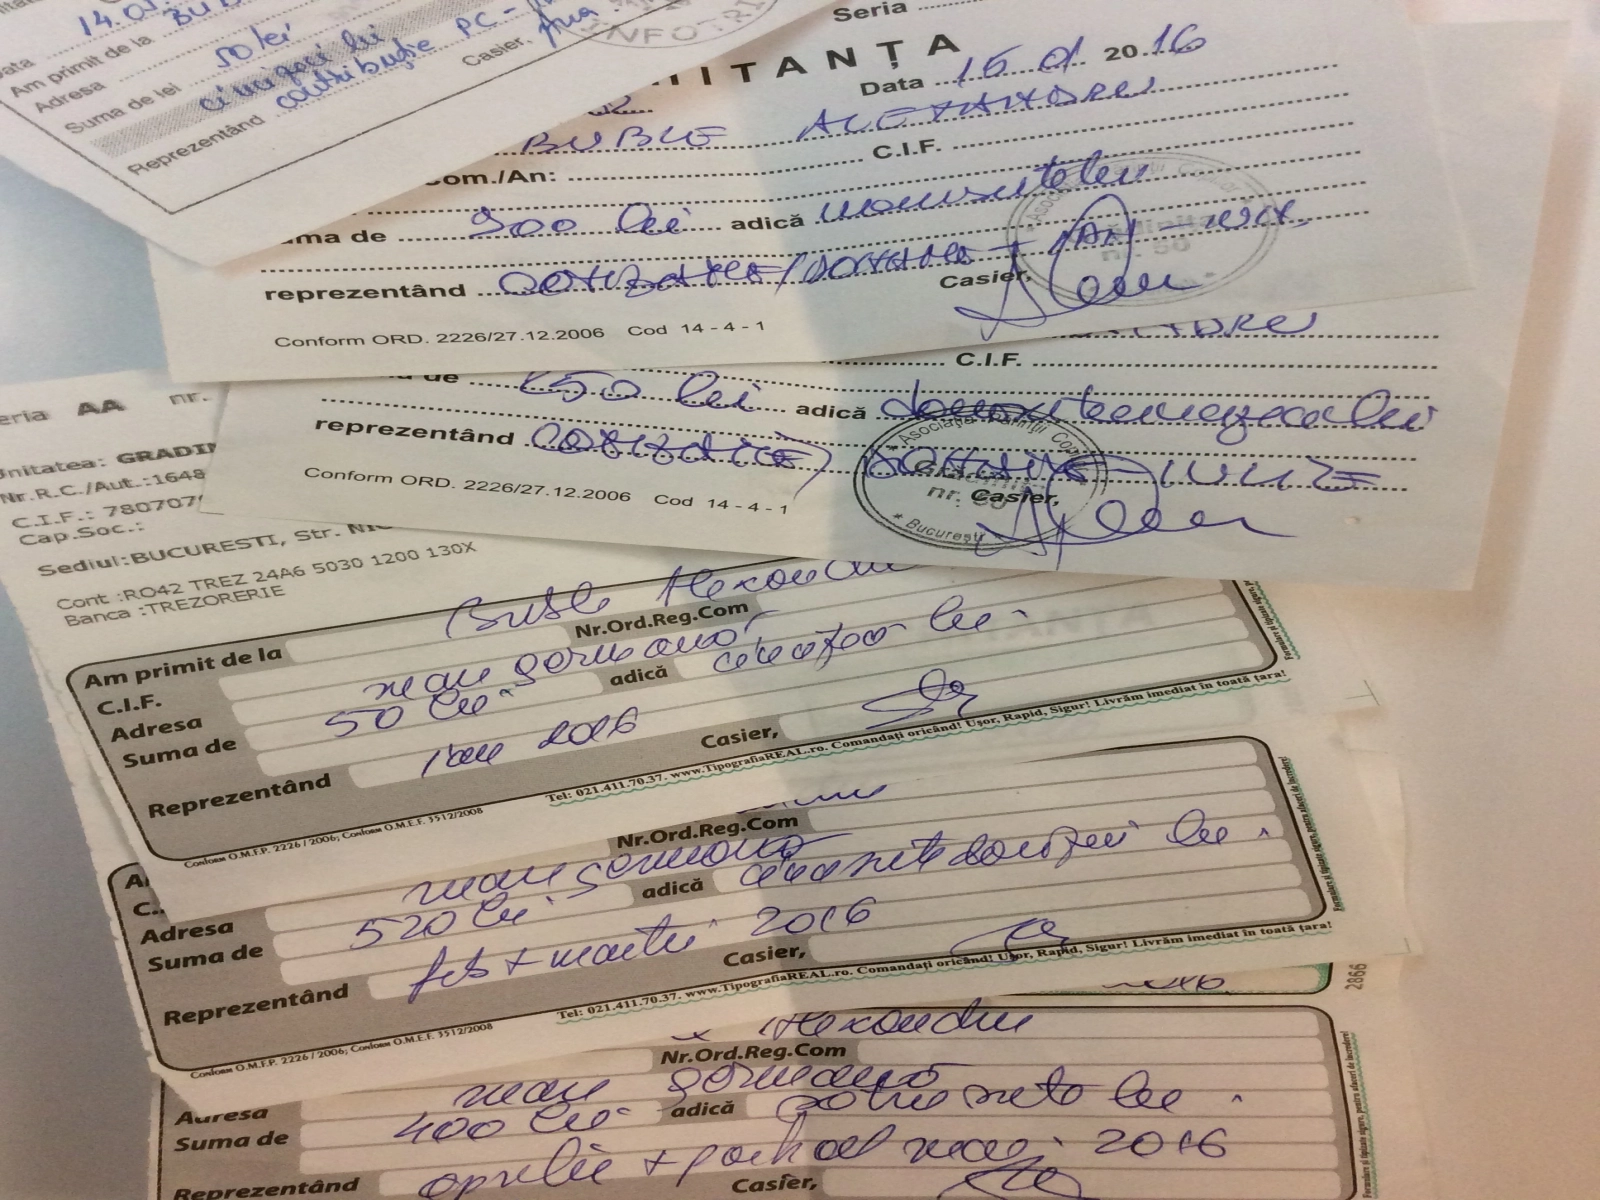 Data 14.01
Am primit de la BUB
Adresa
Suma de lei 50 lei
cinzeci lei
Reprezentând contribuție PC -
Casier, Ana
INFOTRI
Seria
ITANȚA
Data 15 01 2016
BUBLE ALEXANDRU
C.I.F.
Com./An:
uma de 900 lei adică nouasutelei
reprezentând COTIZATIE/DONATIE
Casier,
nr. 50
Conform ORD. 2226/27.12.2006 Cod 14 - 4 - 1
C.I.F.
de 250 lei adică douasutecinzecalei
reprezentând COTIZATIE/ DONATIE - IULIE
Casier,
* Asociația Părinții Cop
Grădinița
nr. 50
* București *
Conform ORD. 2226/27.12.2006 Cod 14 - 4 - 1
eria AA nr.
Unitatea: GRADIN
Nr.R.C./Aut.:1648
C.I.F.: 780707
Cap.Soc.:
Sediul:BUCURESTI, Str. NIC
Cont :RO42 TREZ 24A6 5030 1200 130X
Banca :TREZORERIE
Am primit de la Buble Alexandru
Nr.Ord.Reg.Com
C.I.F.
Adresa germana
Suma de 50 lei adică cincizeci lei
Reprezentând ian 2016
Casier,
Conform O.M.F.P. 2226 / 2006; Conform O.M.E.F. 3512/2008
Tel: 021.411.70.37. www.TipografiaREAL.ro. Comandați oricând! Ușor, Rapid, Sigur! Livrăm imediat în toată țara!
Nr.Ord.Reg.Com
C..
Adresa germana
Suma de 520 lei adică cincisutedouazeci lei
Reprezentând feb + martie 2016
Casier,
Conform O.M.F.P. 2226 / 2006; Conform O.M.E.F. 3512/2008
Tel: 021.411.70.37. www.TipografiaREAL.ro. Comandați oricând! Ușor, Rapid, Sigur! Livrăm imediat în toată țara!
2866
Alexandru
Nr.Ord.Reg.Com
Adresa germana
Suma de 400 lei adică patru sute lei
Reprezentând aprilie + mai 2016
Casier,